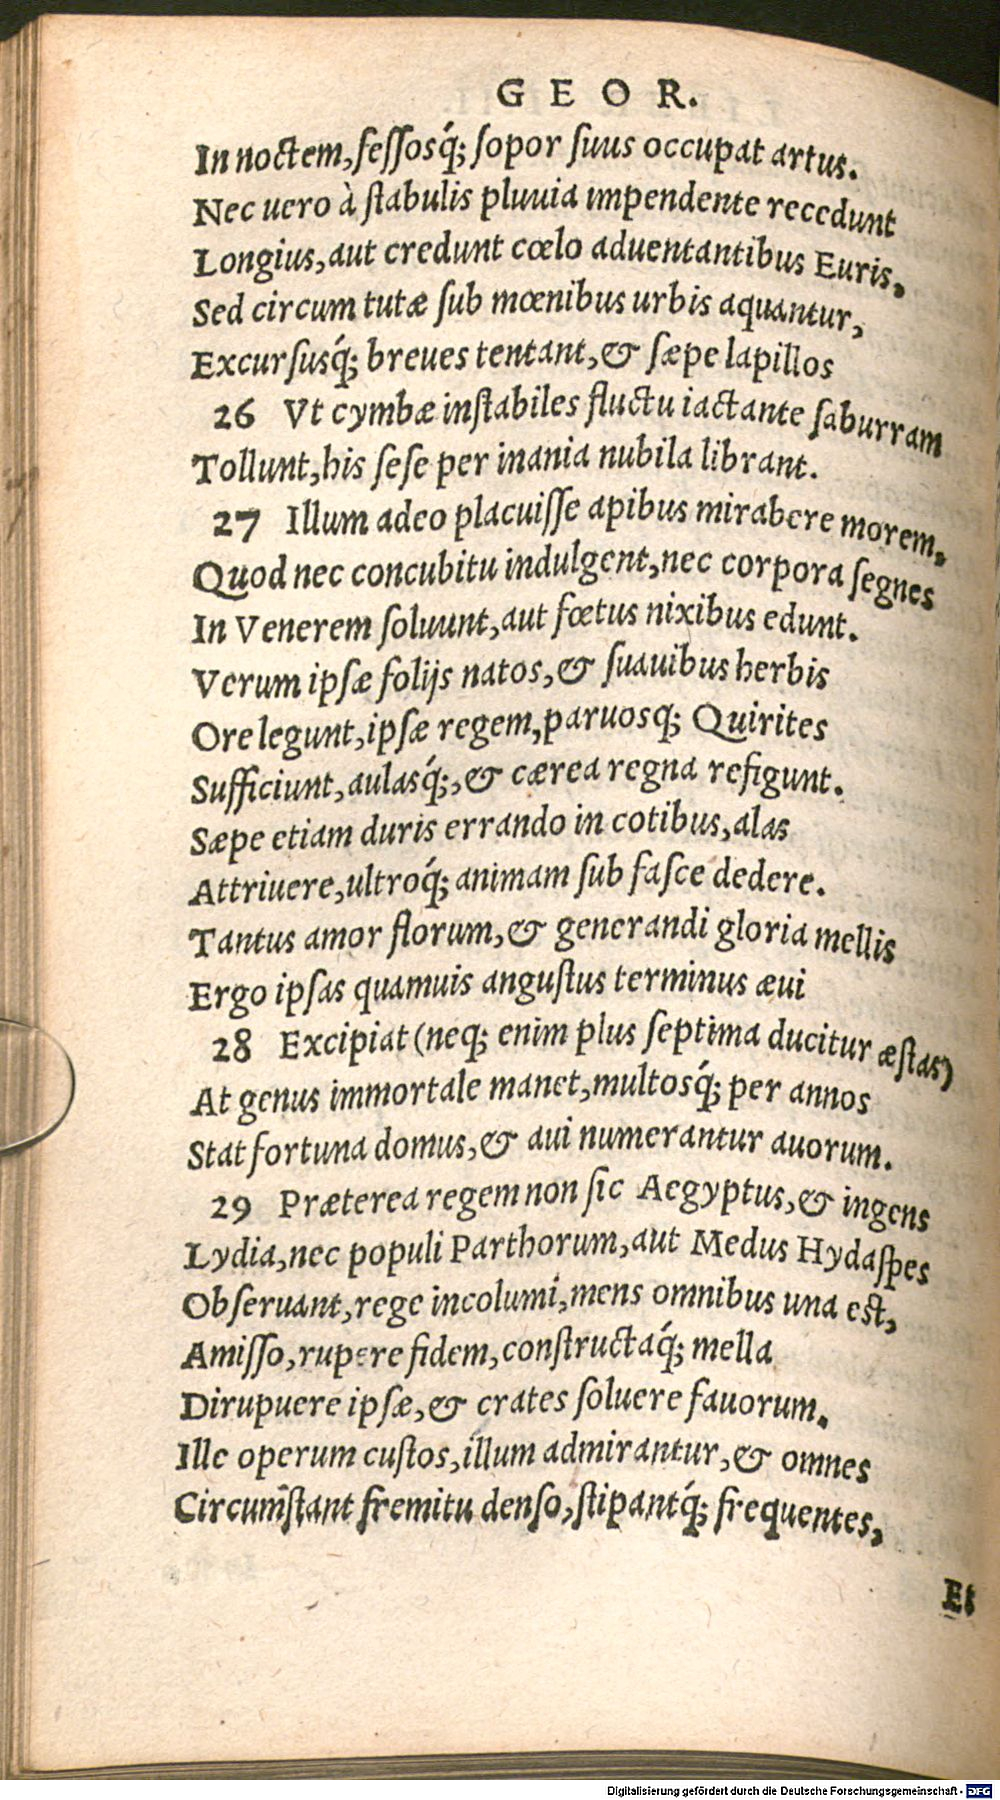 GEOR.
In noctem, fessosq́; sopor suus occupat artus.
Nec uero à stabulis pluuia impendente recedunt
Longius, aut credunt cœlo aduentantibus Euris,
Sed circum tutæ sub mœnibus urbis aquantur,
Excursusq́; breues tentant, & sæpe lapillos
26 Vt cymbæ instabiles fluctu iactante saburram
Tollunt, his sese per inania nubila librant.
27 Illum adeo placuisse apibus mirabere morem,
Quod nec concubitu indulgent, nec corpora segnes
In Venerem soluunt, aut fœtus nixibus edunt.
Verum ipsæ folijs natos, & suauibus herbis
Ore legunt, ipsæ regem, paruosq; Quirites
Sufficiunt, aulasq́;, & cærea regna refigunt.
Sæpe etiam duris errando in cotibus, alas
Attriuere, ultroq́; animam sub fasce dedere.
Tantus amor florum, & generandi gloria mellis
Ergo ipsas quamuis angustus terminus æui
28 Excipiat (neq; enim plus septima ducitur æstas)
At genus immortale manet, multosq́; per annos
Stat fortuna domus, & aui numerantur auorum.
29 Præterea regem non sic Aegyptus, & ingens
Lydia, nec populi Parthorum, aut Medus Hydaspes
Obseruant, rege incolumi, mens omnibus una est,
Amisso, rupere fidem, constructaq́; mella
Dirupuere ipsæ, & crates soluere fauorum.
Ille operum custos, illum admirantur, & omnes
Circumstant fremitu denso, stipantq́; frequentes,
Et
Digitalisierung gefördert durch die Deutsche Forschungsgemeinschaft - DFG